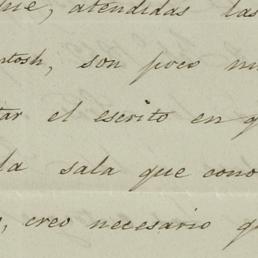 que, atendidas las
ntosh, son poco
tar el escrito en
la sala que cono
, creo necesario q